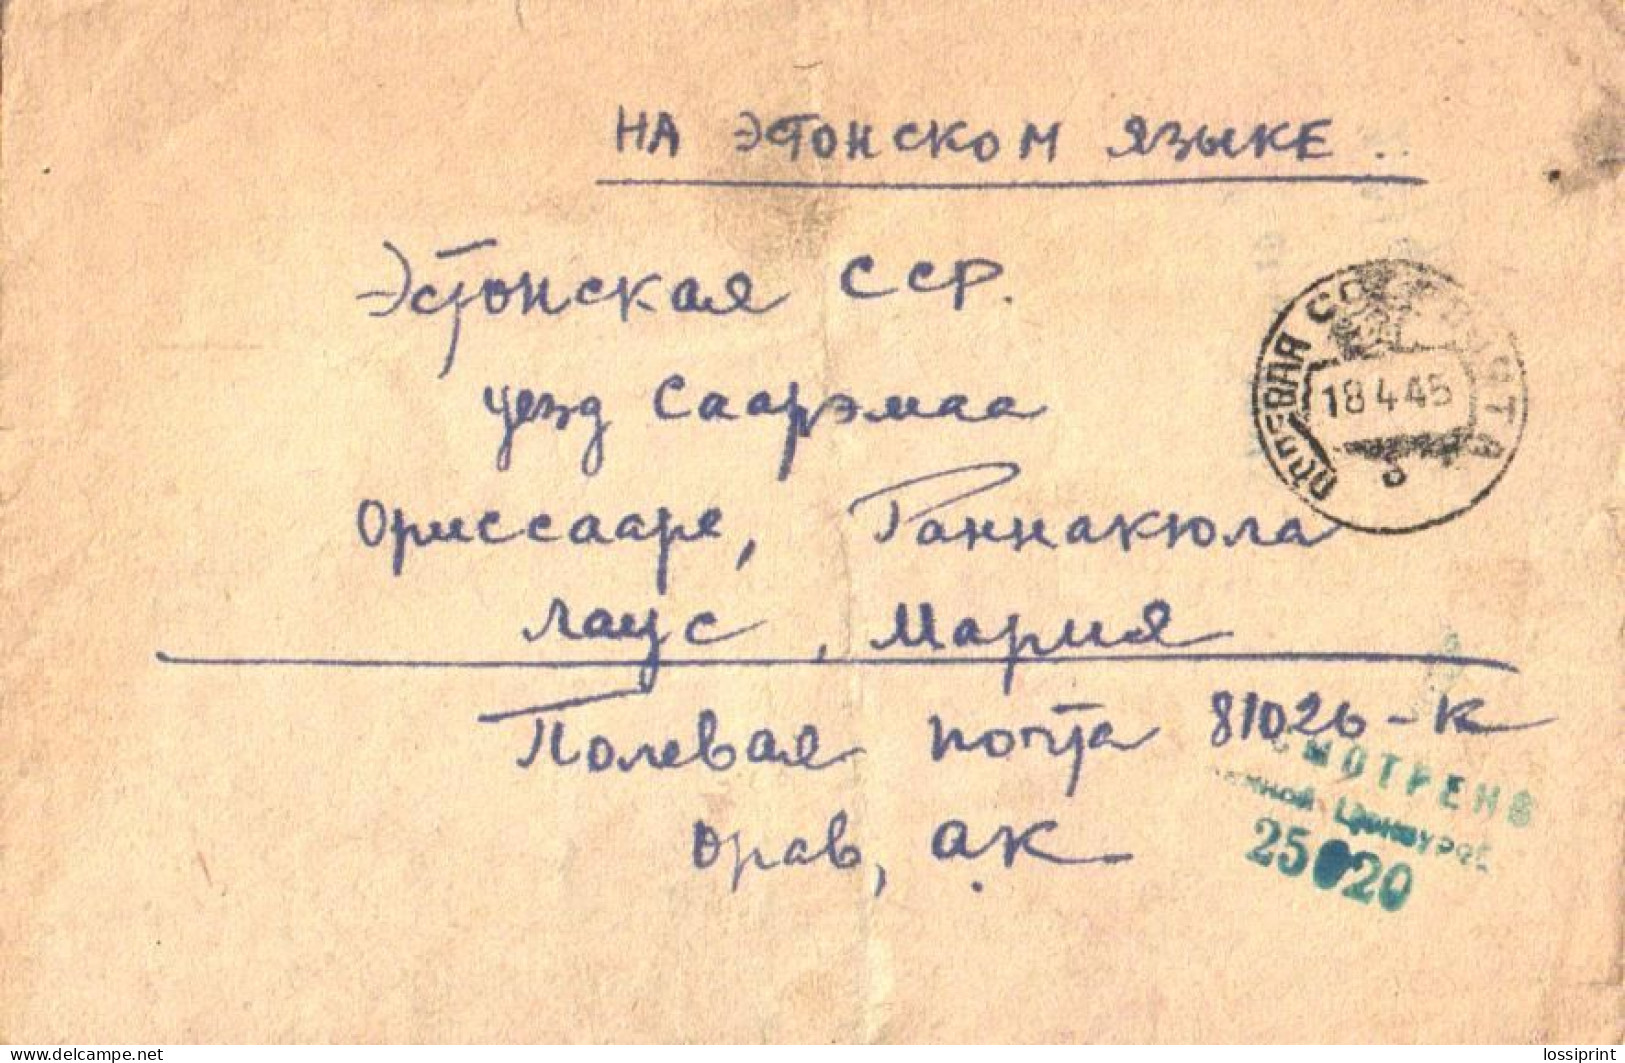 НА ЭСТОНСКОМ ЯЗЫКЕ.
Эстонская ССР.
уезд Саарэмаа
Ориссааре, Раннакюла
Лаус, Мария
Полевая почта 81026-К
Орав, А.К.
ПОЛЕВАЯ
18 4 45
СМОТРЕНО
Цензурой
https://www.delcampe.net
lossiprint